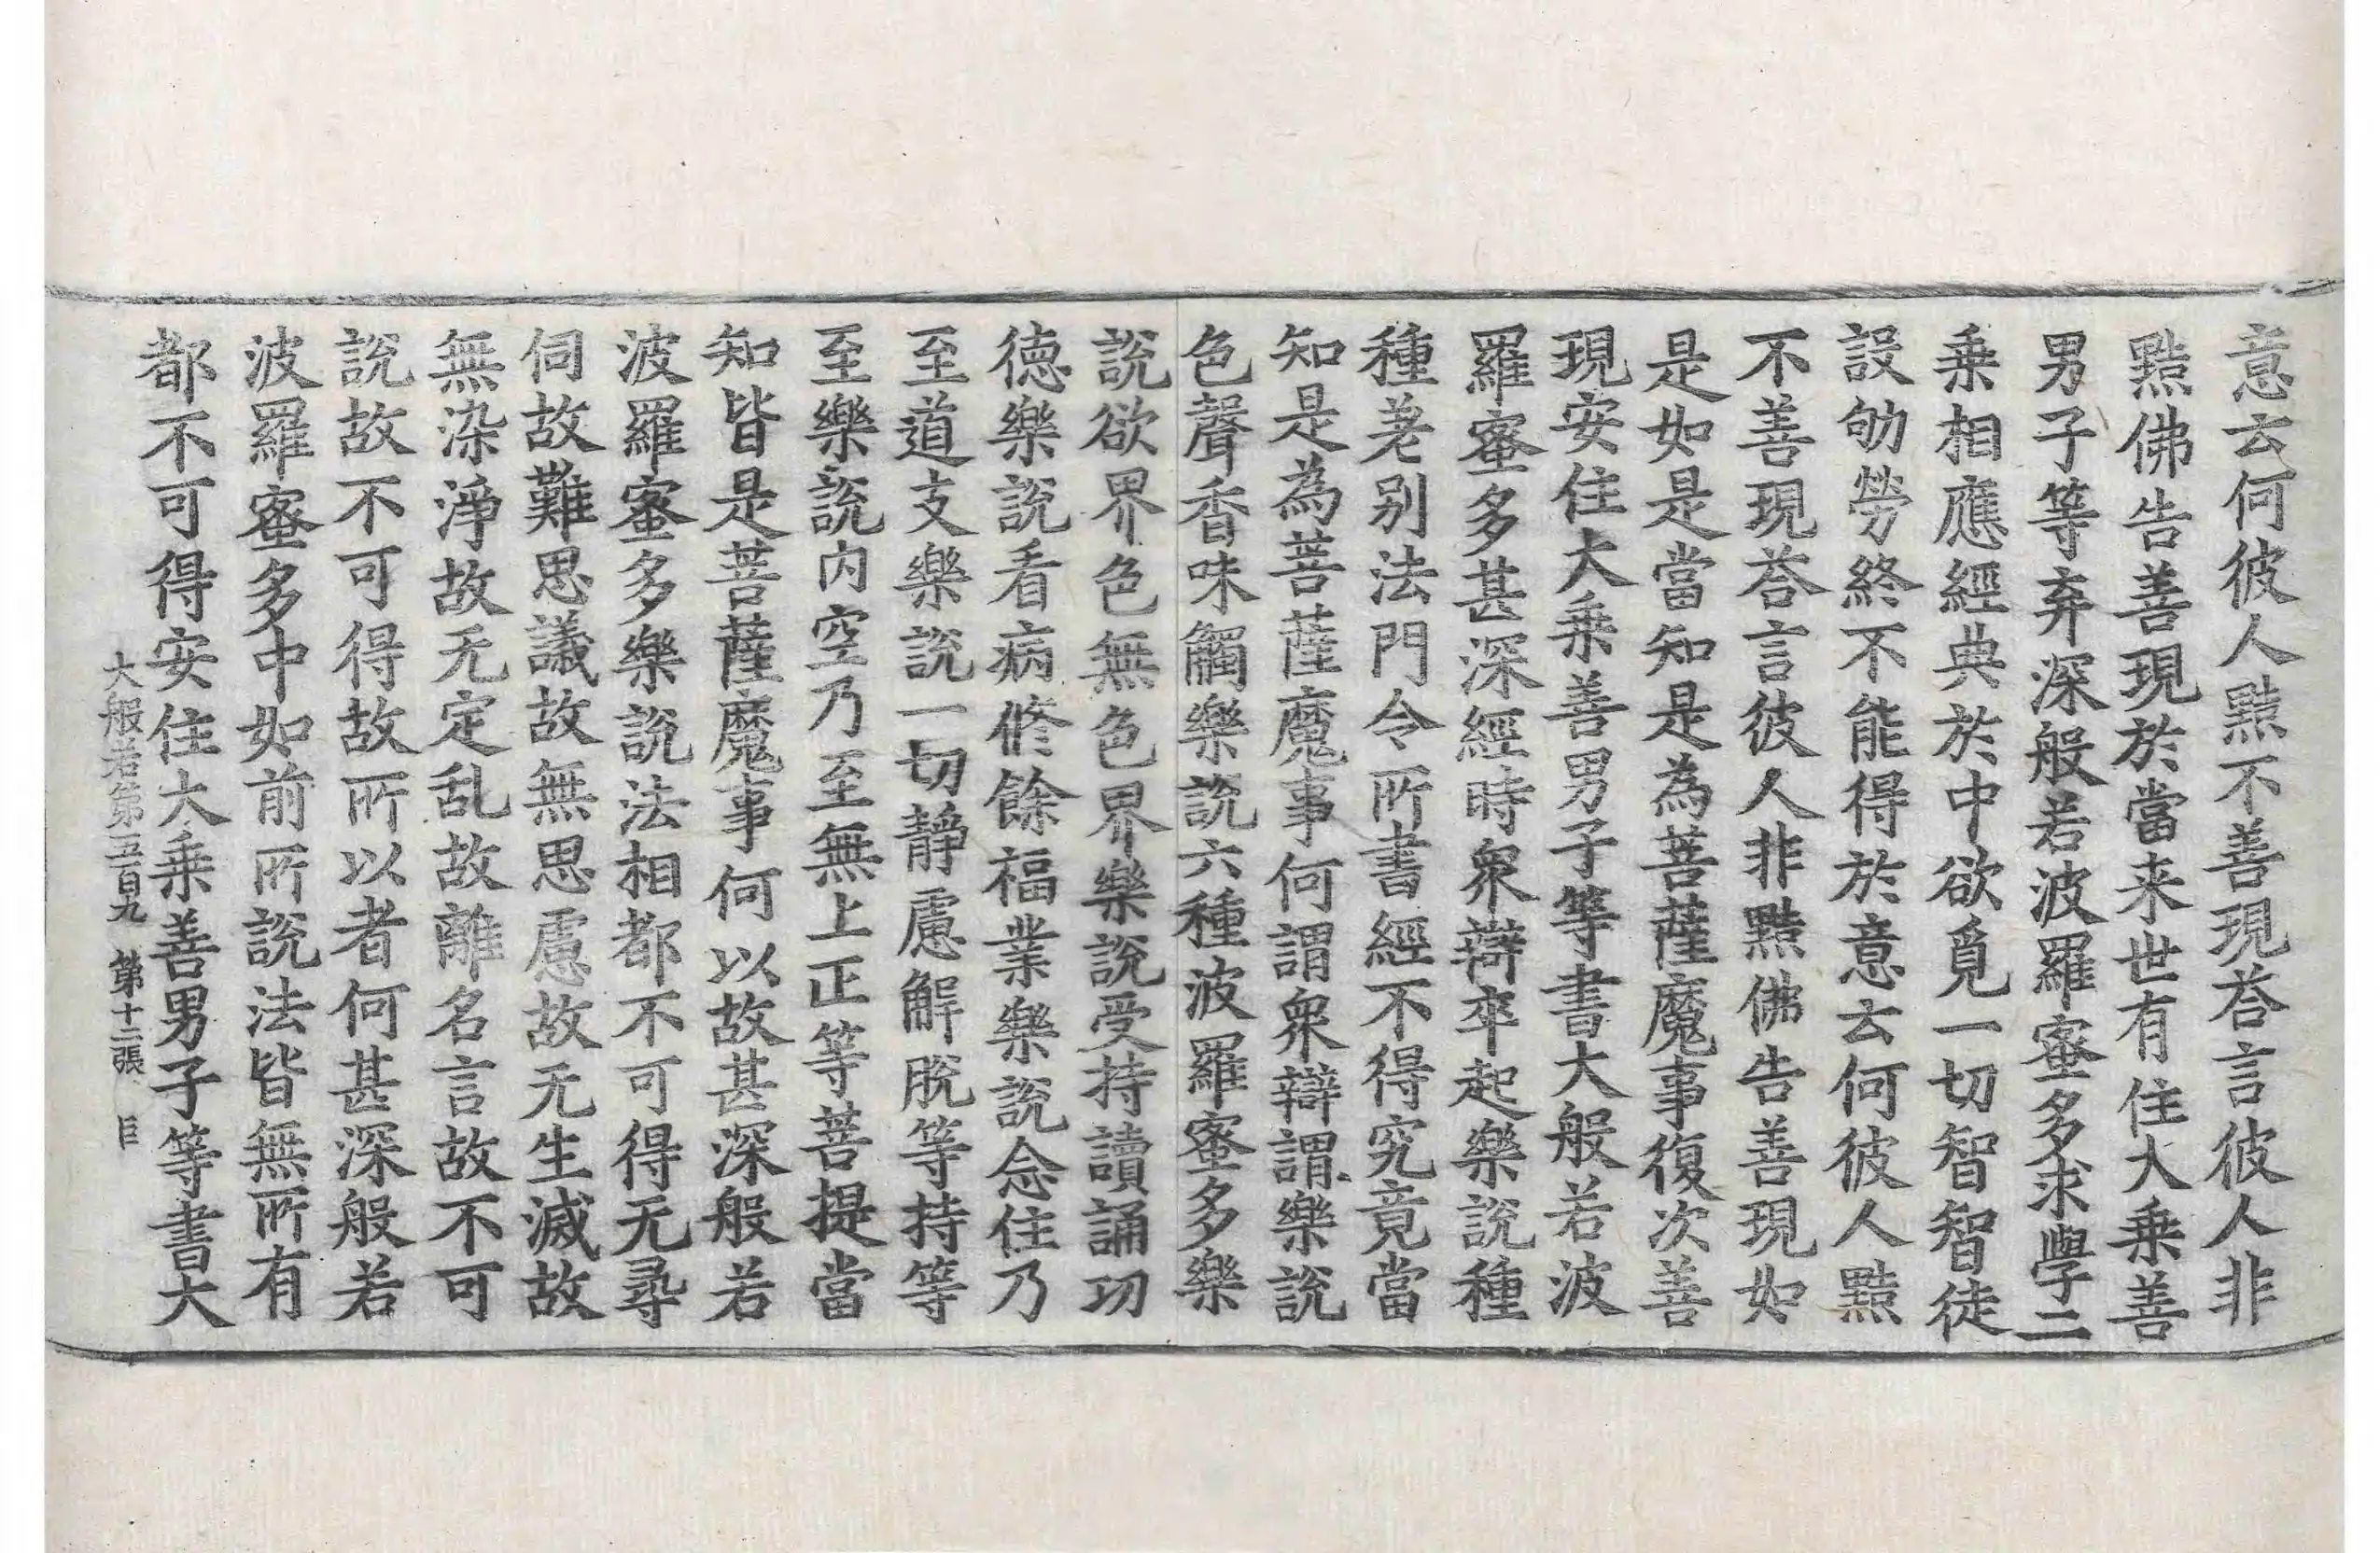 意云何彼人黠不善現荅言彼人非
黠佛告善現於當来世有住大乗善
男子等弃深般若波羅蜜多求學二
乗相應經典於中欲覓一切智智徒
設劬勞終不能得於意云何彼人黠
不善現荅言彼人非黠佛告善現如
是如是當知是為菩薩魔事復次善
現安住大乗善男子等書大般若波
羅蜜多甚深經時衆辯卒起樂說種
種差别法門令所書經不得究竟當
知是為菩薩魔事何謂衆辯謂樂說
色聲香味觸樂說六種波羅蜜多樂
說欲界色無色界樂說受持讀誦功
德樂說看病脩餘福業樂說念住乃
至道支樂說一切靜慮解脫等持等
至樂說内空乃至無上正等菩提當
知皆是菩薩魔事何以故甚深般若
波羅蜜多樂說法相都不可得无尋
伺故難思議故無思慮故无生滅故
無染淨故无定乱故離名言故不可
說故不可得故所以者何甚深般若
波羅蜜多中如前所說法皆無所有
都不可得安住大乗善男子等書大
大般若第五百九 第十二張